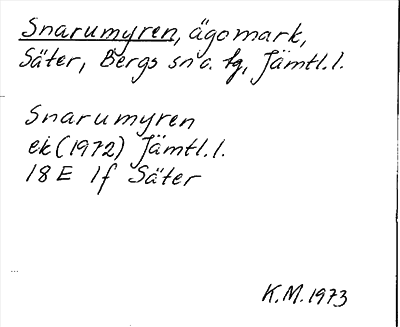 Snarumyren, ägomark,
Säter, Bergs sn o. tg, Jämtl.l.
Snarumyren
ek (1972) Jämtl.l.
18E 1f Säter
K.M. 1973